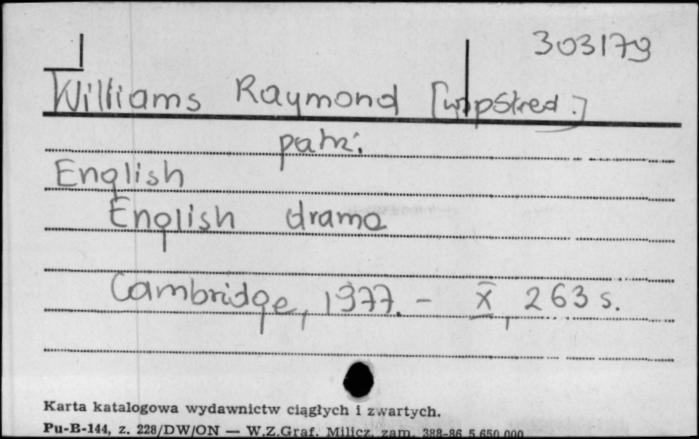 303179
Williams Raymond [wpstęp.]
patrz:
English
English drama
Cambridge, 1977. - X, 263 s.
Karta katalogowa wydawnictw ciągłych i zwartych.
Pu-B-144, z. 228/DW/ON — W.Z.Graf. Milicz. zam. 388-86 5.650.000